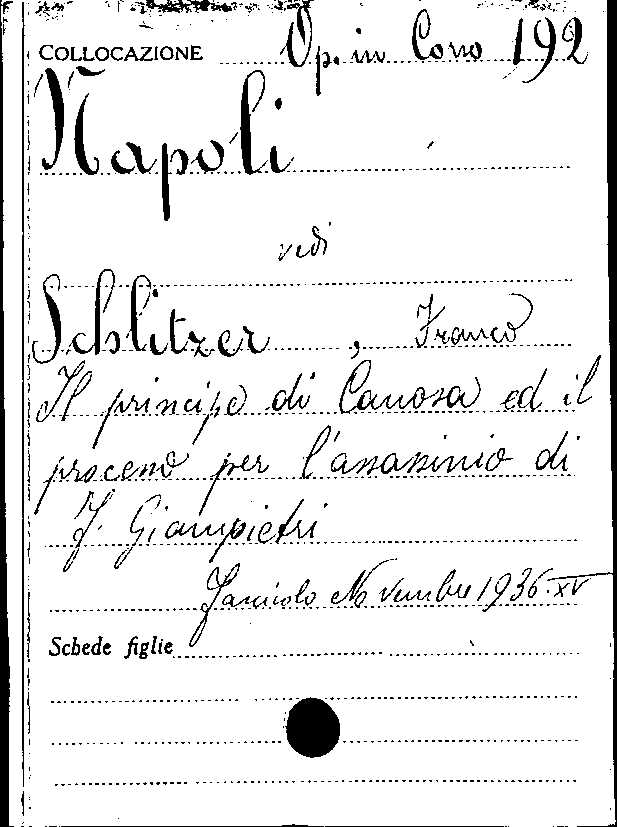 COLLOCAZIONE Op. in Corso 192
Napoli
vedi
Schlitzer, Franco
Il principe di Canosa ed il
processo per l'assassinio di
F. Giampietri
Fascicolo Novembre 1936-XV
Schede figlie